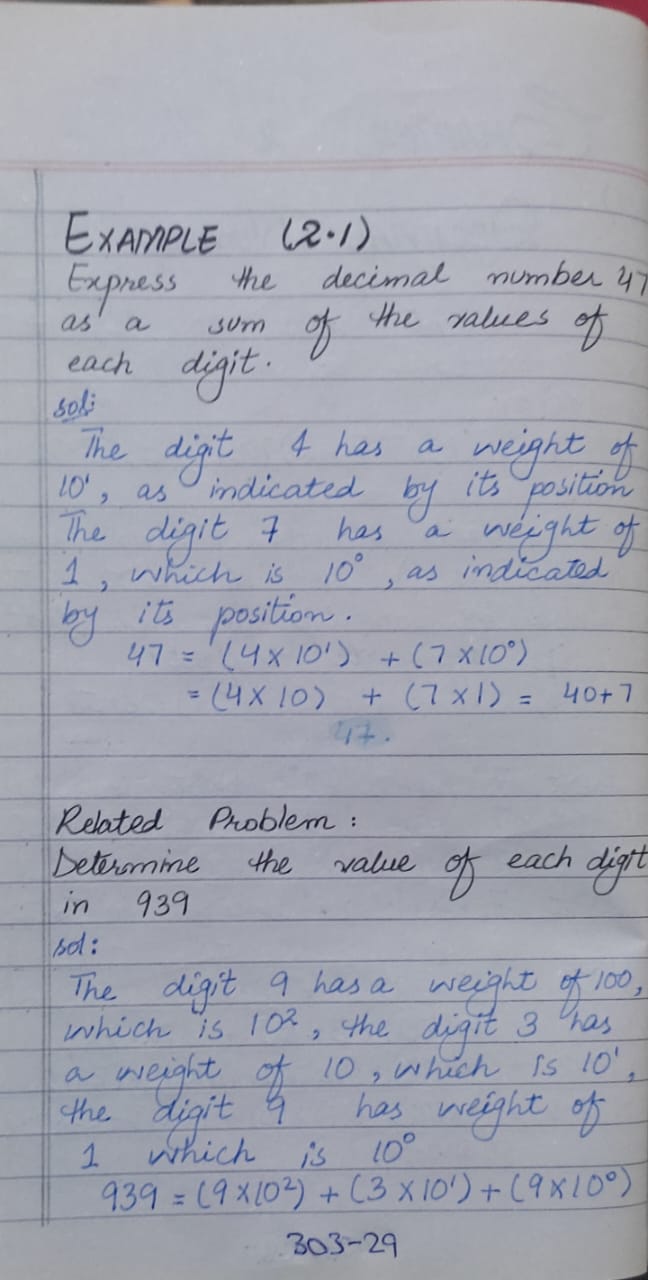 EXAMPLE (2.1)
Express the decimal number 47
as a sum of the values of
each digit.
sol:
The digit 4 has a weight of
10¹, as indicated by its position
The digit 7 has a weight of
1, which is 10⁰, as indicated
by its position.
47 = (4 x 10¹) + (7 x 10⁰)
= (4 x 10) + (7 x 1) = 40+7
47.
Related Problem:
Determine the value of each digit
in 939
sol:
The digit 9 has a weight of 100,
which is 10², the digit 3 has
a weight of 10, which is 10¹,
the digit 9 has weight of
1 which is 10⁰
939 = (9 x 10²) + (3 x 10¹) + (9 x 10⁰)
303-29